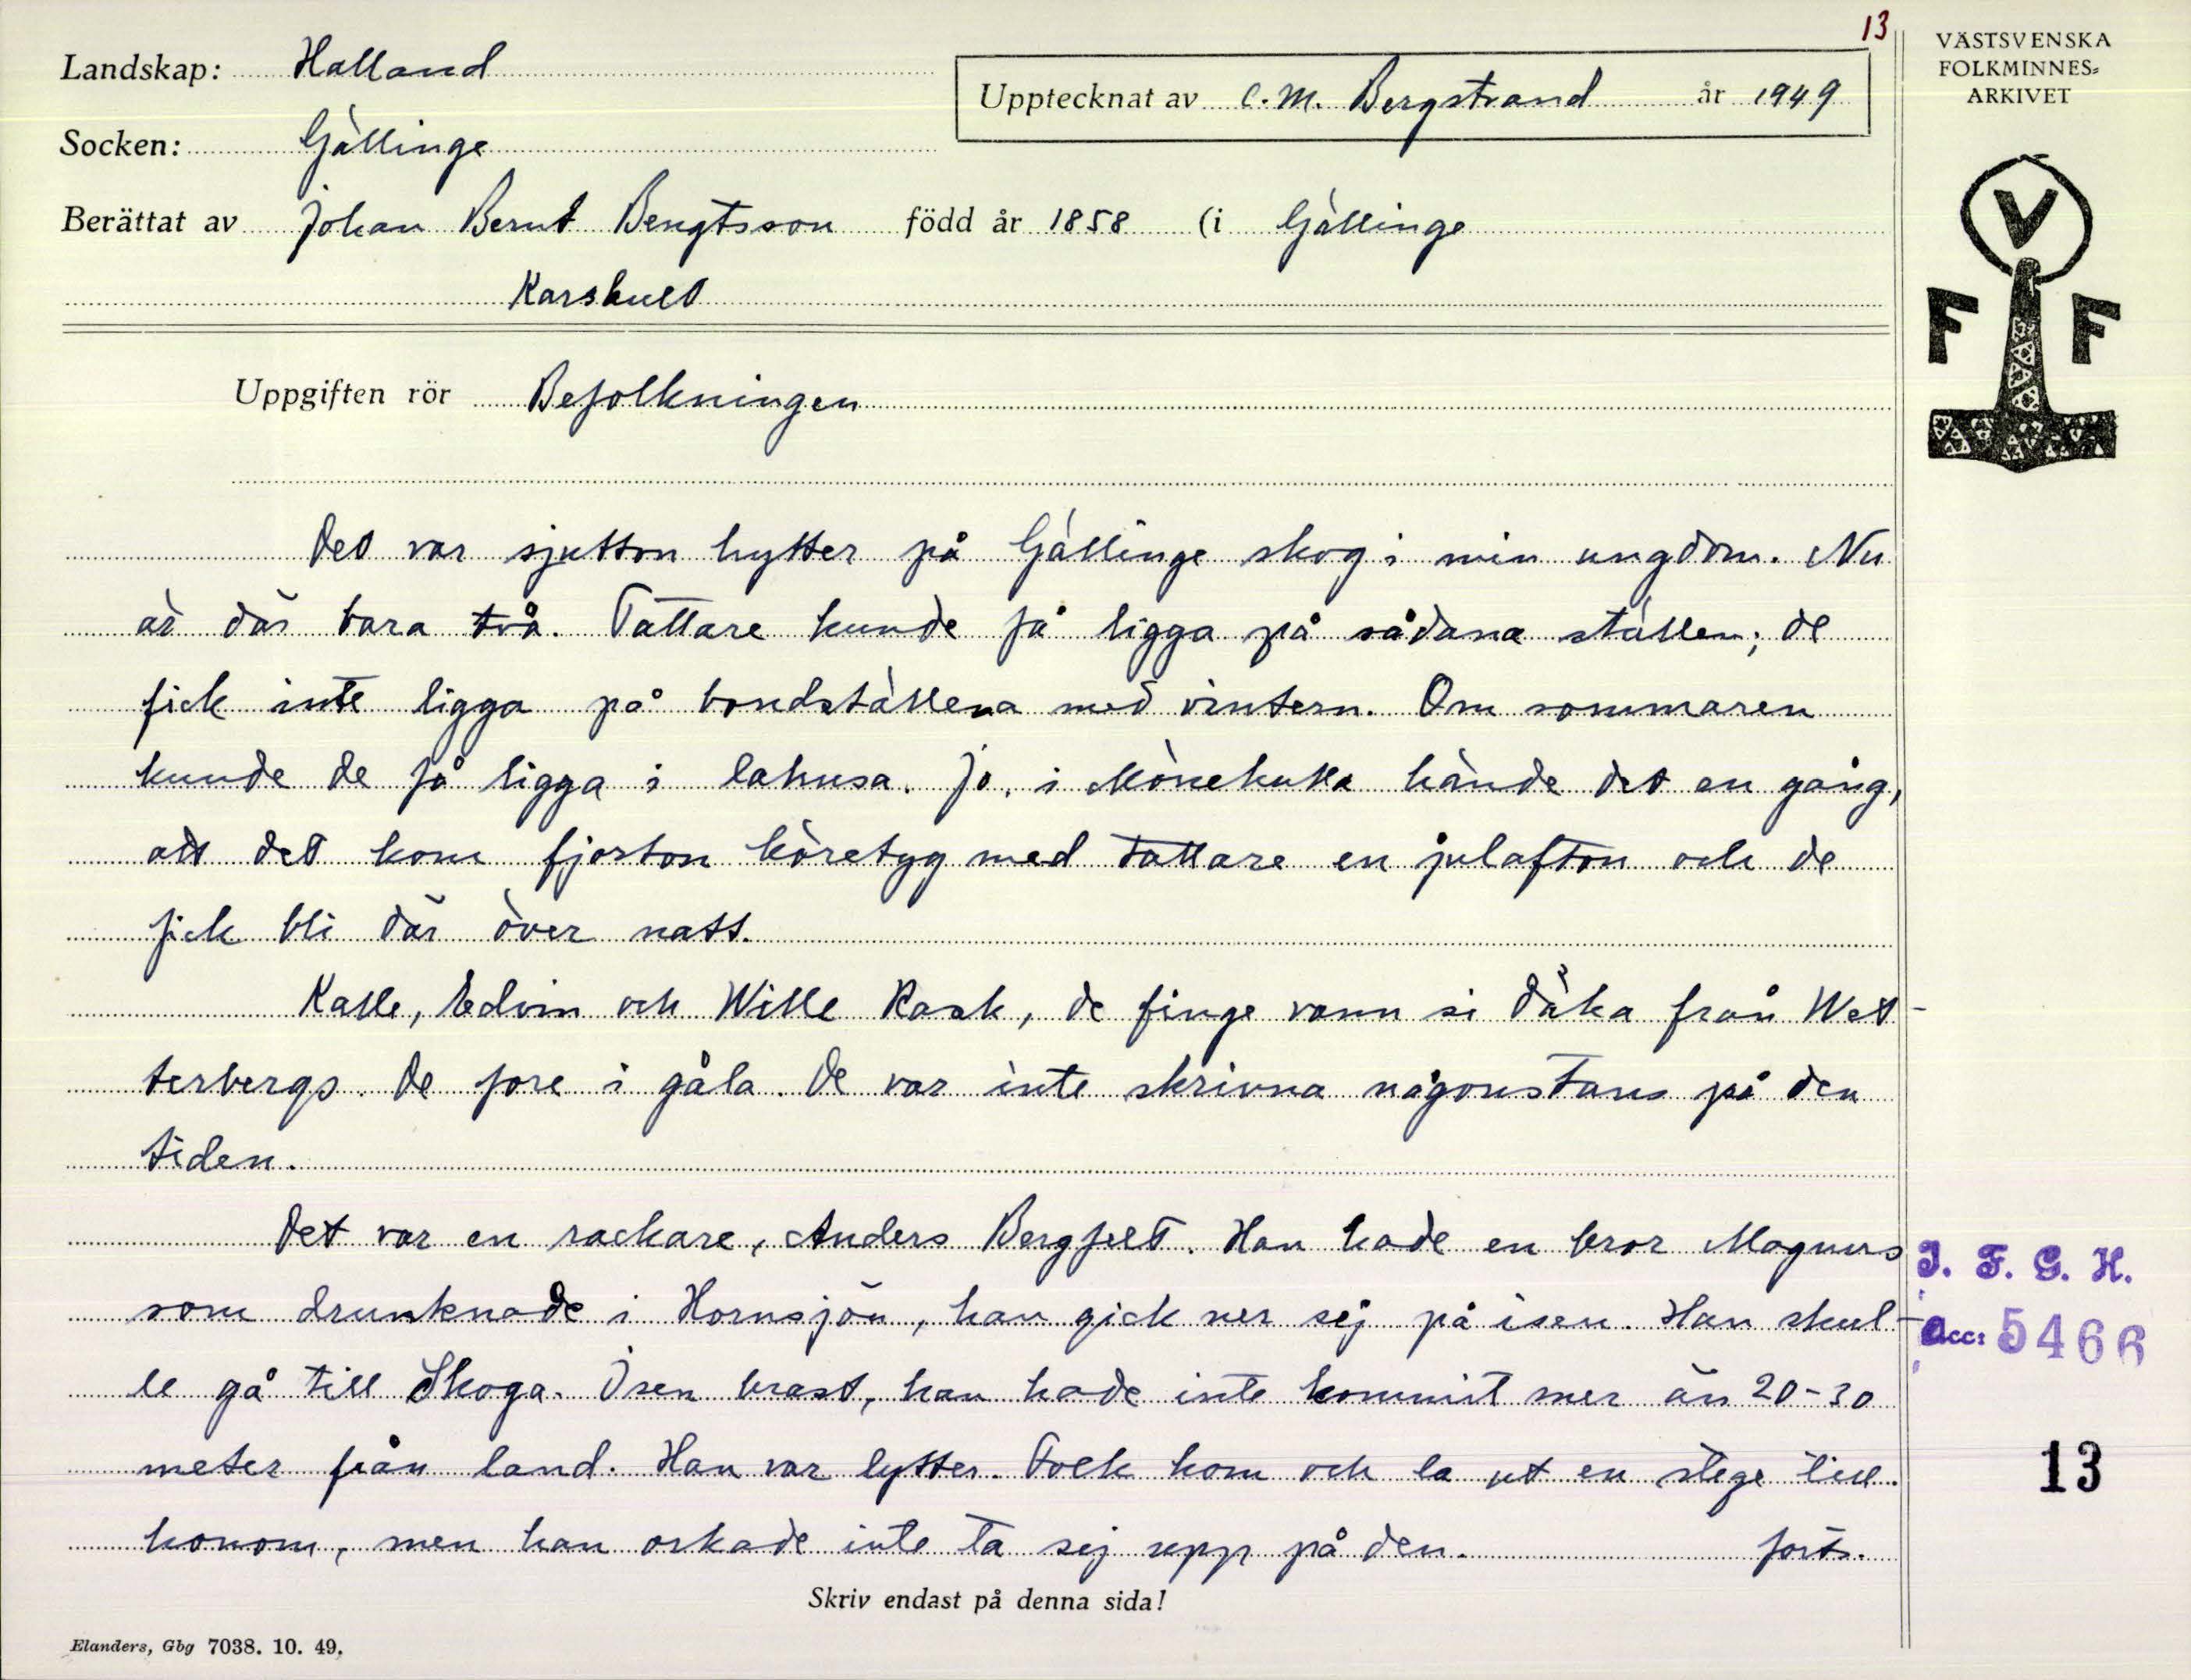 13
VÄSTSVENSKA
FOLKMINNES-
ARKIVET
Landskap: Halland
Upptecknat av C. M. Bergstrand år 1949
Socken: Gällinge
Berättat av Johan Bernt Bengtsson född år 1858 (i Gällinge
Karshult
V
F F
Uppgiften rör Befolkningen
Det var sjutton hytter på Gällinge skog i min ungdom. Nu
är där bara två. Tattare kunde få ligga på sådana ställen; de
fick inte ligga på bondställena med vintern. Om sommaren
kunde de få ligga i lahusa. Jo, i Mönekulla hände det en gång,
att det kom fjorton köretyg med tattare en julafton och de
fick bli där över natt.
Kalle, Edvin och Wille Rask, de finge vann si däka från Wet-
terbergs. De fore i gåla. De var inte skrivna någonstans på den
tiden.
Det var en rackare, Anders Bergfelt. Han hade en bror Magnus
som drunknade i Hornsjön, han gick ner sej på isen. Han skul-
le gå till Skoga. Isen brast, han hade inte kommit mer än 20-30
meter från land. Han var lytter. Folk kom och la ut en stege till
honom, men han orkade inte ta sej upp på den. forts.
I. F. G. H.
Acc: 5466
13
Skriv endast på denna sida!
Elanders, Gbg 7038. 10. 49.